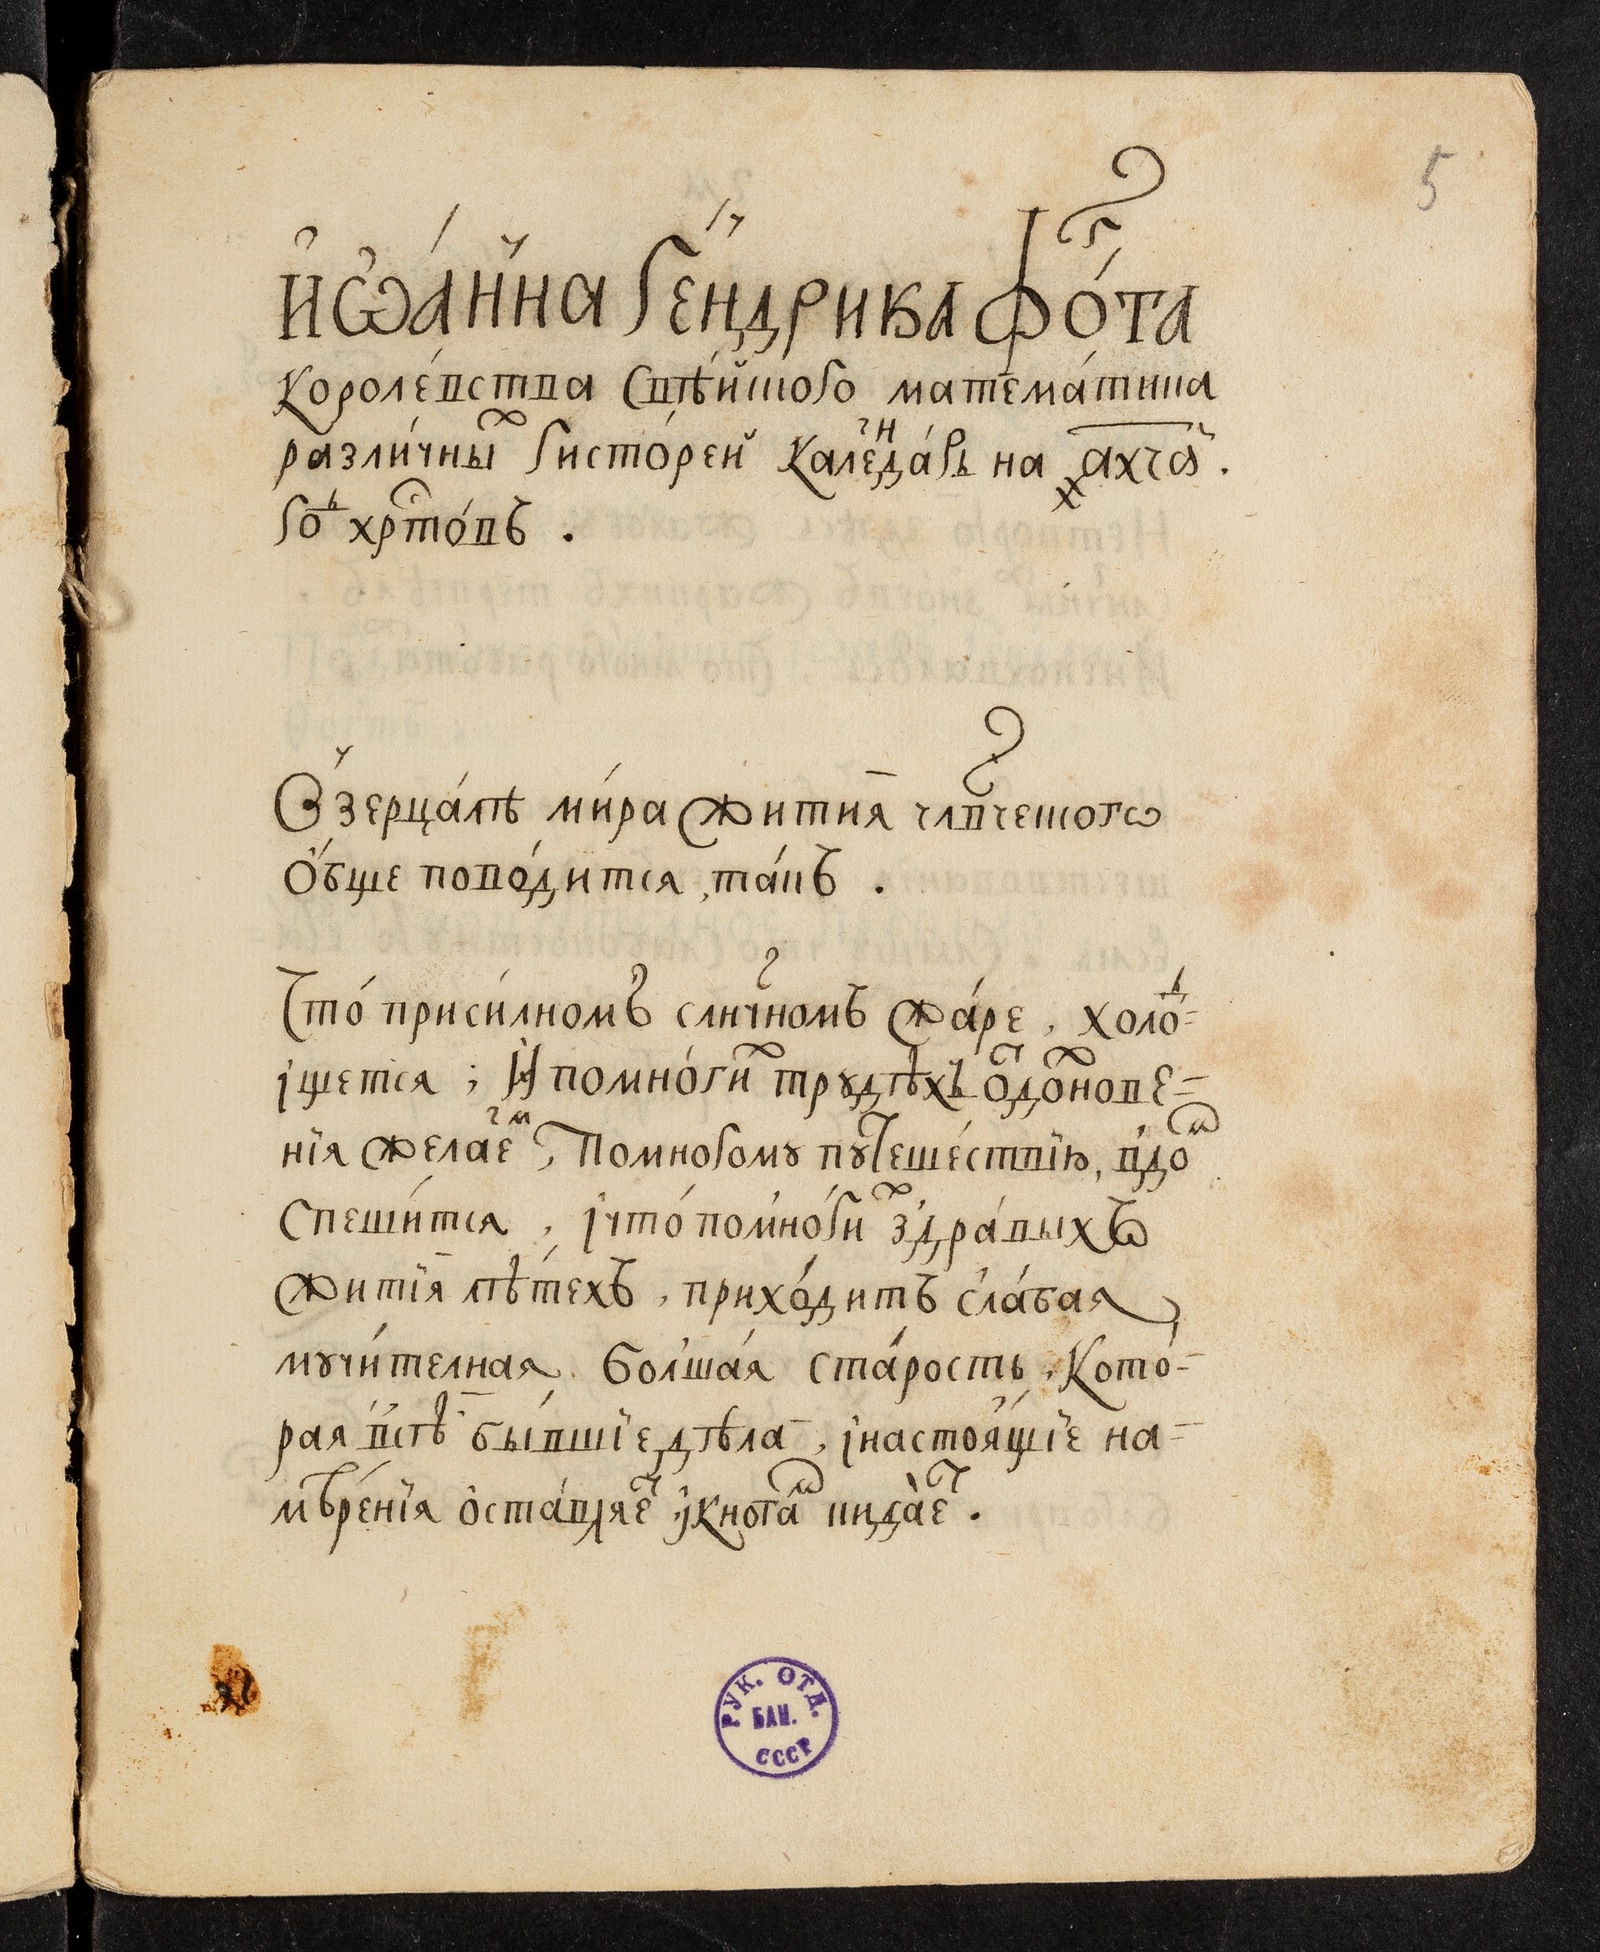 5
И҆ѡа́нна Ге́ндрика Фо́гта
короле́вства свѣ́йского матема́тика
разли́чных гисто́рей календа́рь на ахчѳ.
го̑д хрⷭ҇то́въ .
Ѡ зерца́лѣ ми́ра житиѧ̀ члвческогѡ
о́бще пово́дится та́къ .
Что́ приси́лномъ слнчномъ жа́ре , холод=
ищется ; И помно́гих трудѣхъ ѿдохнове=
нїя желаем , Помногому путешествїю, в дом
спеши́тся , і что́ помно́гих здра́выхъ
житїя лѣ́техъ , прихо́дитъ сла́бая
мучи́телная болша́я ста́рость , Кото́=
рая всѣ бы́вшїе дѣла , і настоя́щїе на=
мѣре́нїя оставляет , і к ногам кида́ет .
РУК. ОТД.
БАН.
СССР